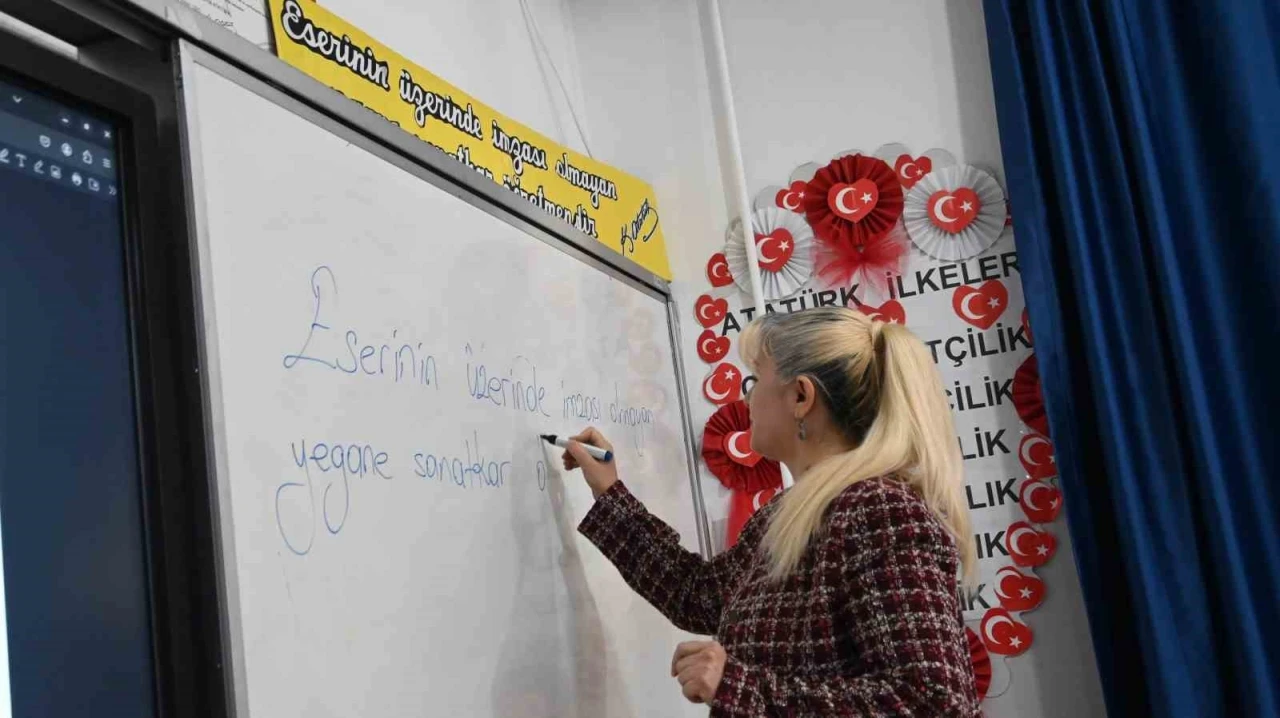 Eserinin üzerinde imzası olmayan
öğretmendir
K. Atatürk
Eserinin üzerinde imzası olmayan
yegane sanatkar ö
ATATÜRK İLKELER
TÇİLİK
ÇİLİK
LİK
LIK
IK
IK